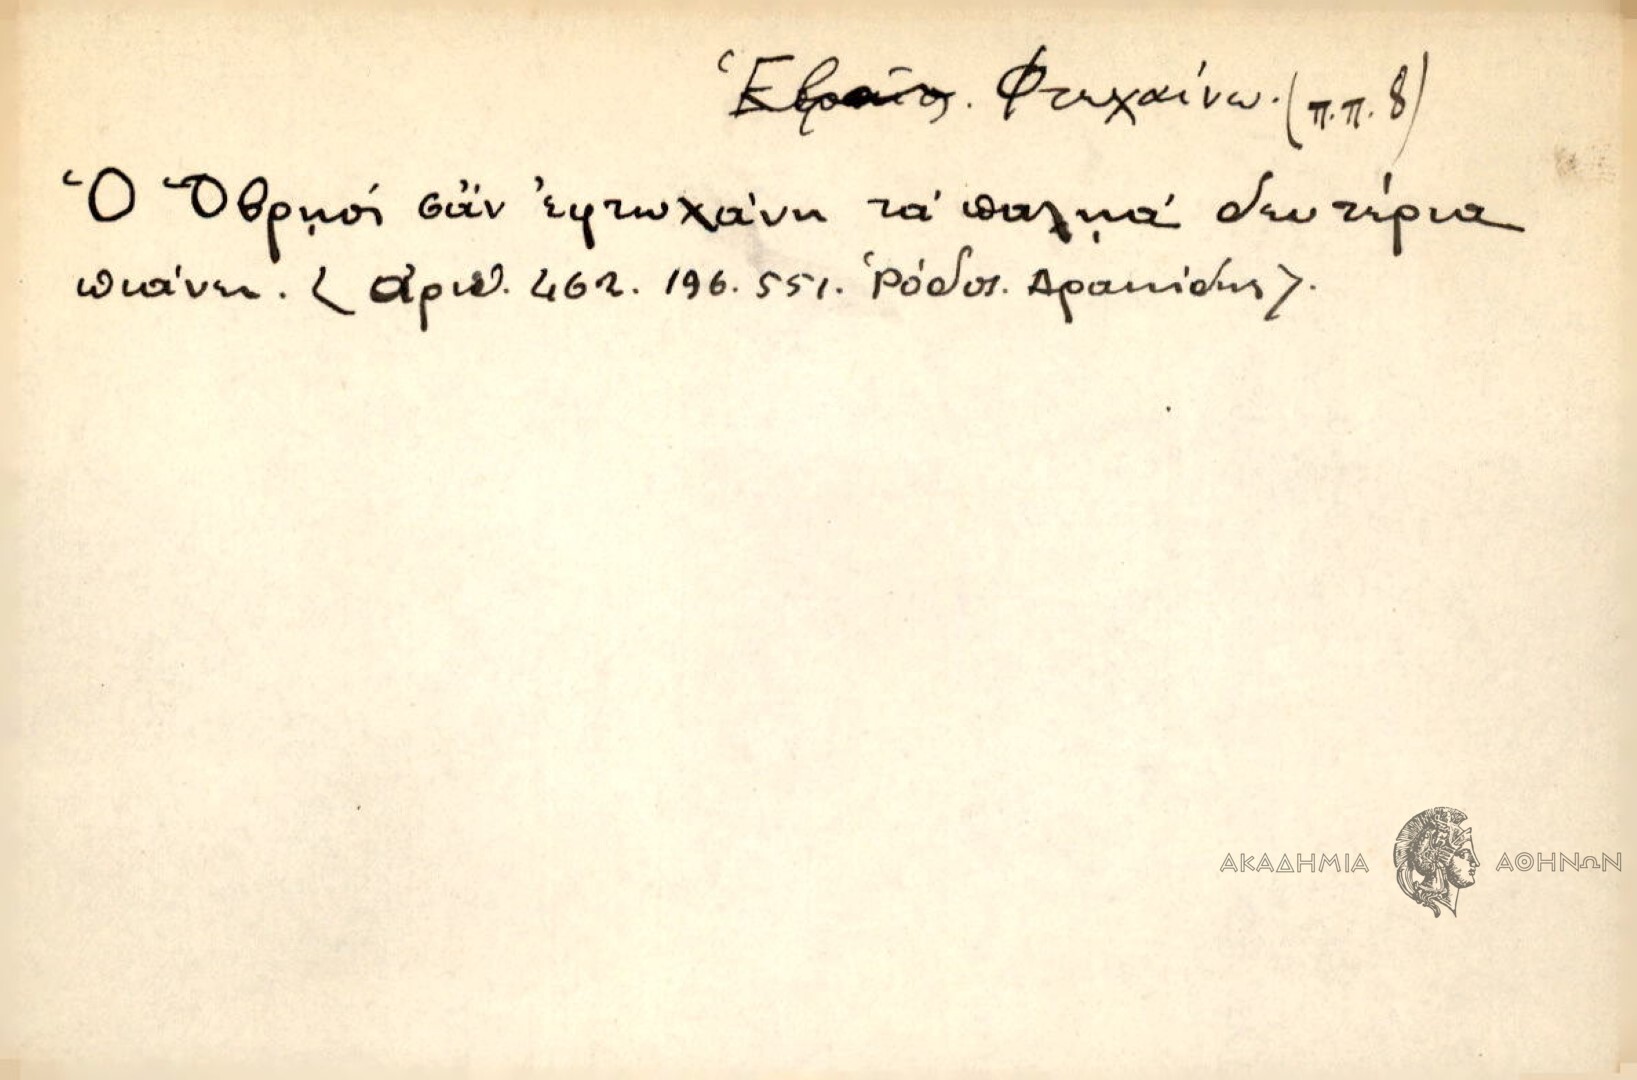 Ἑβραῖος. Φτωχαίνω. (π.π. 8)
Ὁ Ὀβρῃός σἂν ἐφτωχάνῃ τὰ παλῃά δευτέρια
πιάνει. < ἀριθ. 462. 196. 551. Ῥόδος. Δρακίδης >.
ΑΚΑΔΗΜΙΑ ΑΘΗΝΩΝ